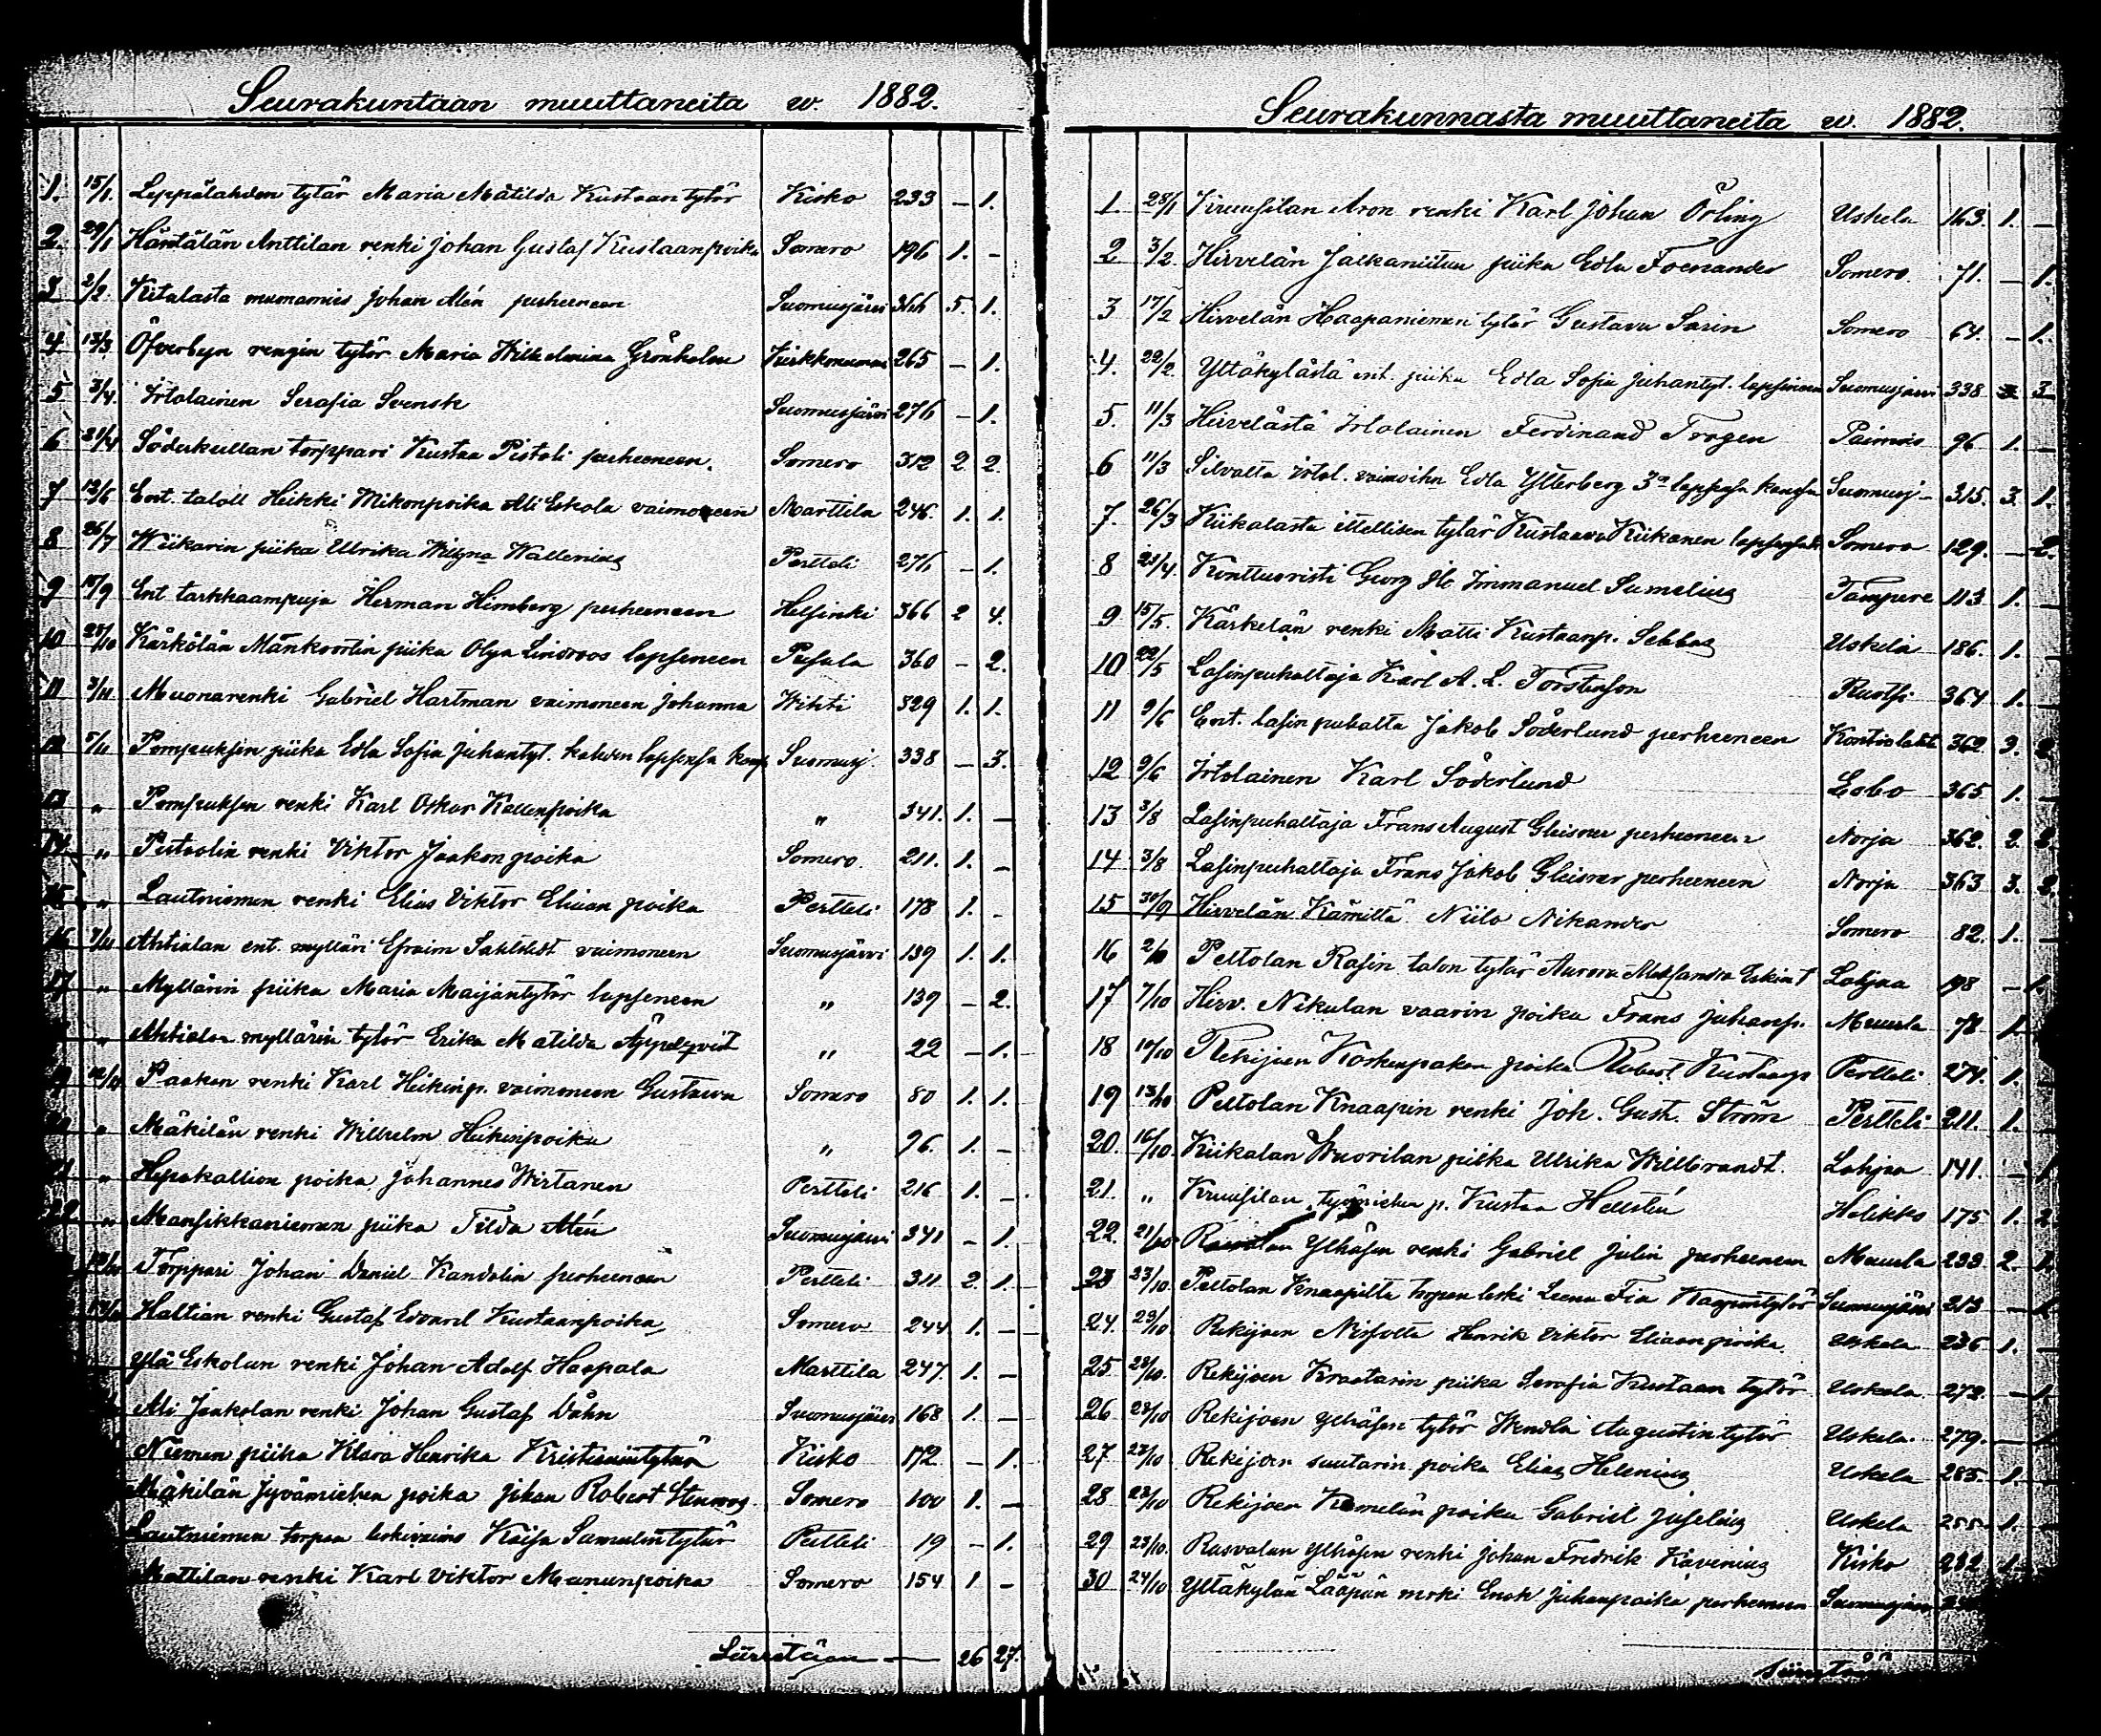 Seurakuntaan muuttaneita w. 1882.
1. 15/1. Leppälahden tytär Maria Matilda Kustaantytär Kisko 233 — 1.
2. 29/1 Häntälän Anttilan renki Johan Gustaf Kustaanpoika Somero 196 1. -
3 2/2. Kiikalasta muonamies Johan Alén perheeneen Suomusjärvi 366 5. 1.
4 13/3 Öfverbyn rengin tytär Maria Wilhelmina Grönholm Kirkkonummi 265 — 1.
5 3/4. Irtolainen Serafia Svensk Suomusjärvi 276 — 1.
6 21/4 Söderkullan torppari Kustaa Pistoli perheeneen. Somero 312 2 2.
7 Ent. taloll Heikki Mikonpoika Ali Eskola vaimoneen Marttila 246. 1. 1.
8 26/7 Wiikarin piika Ulrika Wallenius Pertteli 276 — 1.
9 Ent tarkkaampuja Herman Himberg perheeneen Helsinki 366 2 4.
10 Kärkölän piika Olga Lindroos lapseneen Pusula 360 — 2.
11 3/11 Muonarenki Gabriel Hartman vaimoneen Johanna Wihti 329 1. 1.
12 5/11 Pompuksen piika Edla Sofia Juhantyt. kahden lapsensa kans Suomusj. 338 — 3.
13 " Pompuksen renki Karl Oskar Kallenpoika " 341. 1. —
14 " Pistolin renki Viktor Jaakonpoika Somero 211. 1. —
15 " Lautniemen renki Elias Viktor Eliaan poika Pertteli 178 1. -
16 Ahtialan ent. mylläri Efraim Sahlstedt vaimoneen Suomusjärvi 139 1. 1.
17 " Myllärin piika Maria Maijantytär lapseneen " 139 — 2.
" Ahtialan myllärin tytär Erika Matilda Äppelqvist " 22 — 1.
Paakon renki Karl Heikinp. vaimoneen Gustaava Somero 80 1. 1.
" Mäkilän renki Wilhelm Heikinpoika " 96. 1. -
" Hepokallion poika Johannes Wirtanen Pertteli 216 1. -
22 " Mansikkaniemen piika Tilda Alén Suomusjärvi 341 — 1.
Torppari Johan Daniel Kandolin perheeneen Pertteli 311 2. 1.
Haltian renki Gustaf Edvard Kustaanpoika Somero 244 1. —
Ylä Eskolan renki Johan Adolf Haapala Marttila 247. 1. —
Ali Jaakolan renki Johan Gustaf Dahn Suomusjärvi 168 1. —
Niemen piika Klara Henrika Kristianintytär Kisko 172. — 1.
Mäkilän jyvämiehen poika Johan Robert Stenroos Somero 100 1. —
Lautniemen torpan leskivaimo Kaisa Samulintytär Pertteli 19 — 1.
Mattilan renki Karl Viktor Manunpoika Somero 154 1. —
Siirretään — 26 27.
Seurakunnasta muuttaneita w. 1882.
1 28/1 Kruusilan Aron renki Karl Johan Örling Uskela 163. 1. —
2 3/2. Hirvelän Jalkaniitun piika Edla Somero. 71. — 1.
3 17/2 Hirvelän Haapaniemen tytär Gustava Sarin Somero 64. — 1.
4. 22/2. Yltäkylästä ent. piika Edla Sofia Juhantyt. lapsineen Suomusjärvi 338 3
5. 11/3 Hirvelästä Irtolainen Ferdinand Trogen Paimio 96 1. —
6 11/3 Silvalta irtol. vaimoihn Edla Ytterberg 3a lapsensa kanssa Suomusj- 315. 3. 1.
7. 26/3 Kiikalasta itsellisen tytär Kustaava Kiikonen Somero 129. — 2.
8 21/4. Konttuoristi Georg Immanuel Sumelius Tampere 113 1. —
9 15/5. Kärkelän renki Matti Kustaanp. Sebbas Uskela 186. 1. —
10 22/5 Lasinpuhaltaja Karl A. L. Torstenson Ruotsi 364 1. —
11 9/6 Ent. lasinpuhalta Jakob Söderlund perheeneen Kontiolahti 362. 3. 2.
12 9/6 Irtolainen Karl Söderlund Esbo 365 1. —
13 3/8 Lasinpuhaltaja Frans August Gleisner perheeneen Norja 362. 2. 2.
14 3/8 Lasinpuhaltaja Frans Jakob Gleisner perheeneen Norja 363 3. 2.
15 30/9 Hirvelän Kämiltä Niilo Nikander Somero 82. 1. —
16 2/10 Peltolan Rasin talon tytär Aurora Aleksandra Lohjaa 198 — 1.
17 7/10 Hirv. Nikulan vaarin poika Frans Juhanp. Muurla 78 1.
18 10/10 Rekijoen Koskenpakan poika Robert Kustaanp Pertteli 274. 1. —
19 13/10 Peltolan Knaapin renki Joh. Gust. Ström Pertteli 211. 1. —
20. 16/10 Kiikalan Wuorilan piika Ulrika Willbrandt. Lohjaa 141. — 1
21. " Kruusilan työmiehen p. Kustaa Hellstén Halikko 175 1. 2.
22. 21/10 Rasvalan Ylhäsen renki Gabriel Julin perheeneen Muurla 233 2. 1.
23 23/10. Peltolan Knaapilta torpan leski Leena Fia Suomusjärvi 213 — 1.
24. 23/10 Rekijoen Henrik Viktor Eliaanpoika Uskela 236 1. —
25 23/10. Rekijoen Kraatarin piika Serafia Kustaan tytär Uskela 272. — 1.
26 23/10 Rekijoen Ylhäsen tytär Wendla Augustintytär Uskela. 279. — 1
27 23/10 Rekijoen suutarin poika Elias Helenius Uskela 285. 1.
28 23/10 Rekijoen poika Gabriel Juselius Uskela 255. 1. —
29 23/10. Rasvalan Ylhäsen renki Johan Fredrik Kavenius Kisko 232 1.
30 24/10 Yltäkylän Lääpän renki Enok Juhanpoika perheeneen Suomusjärvi